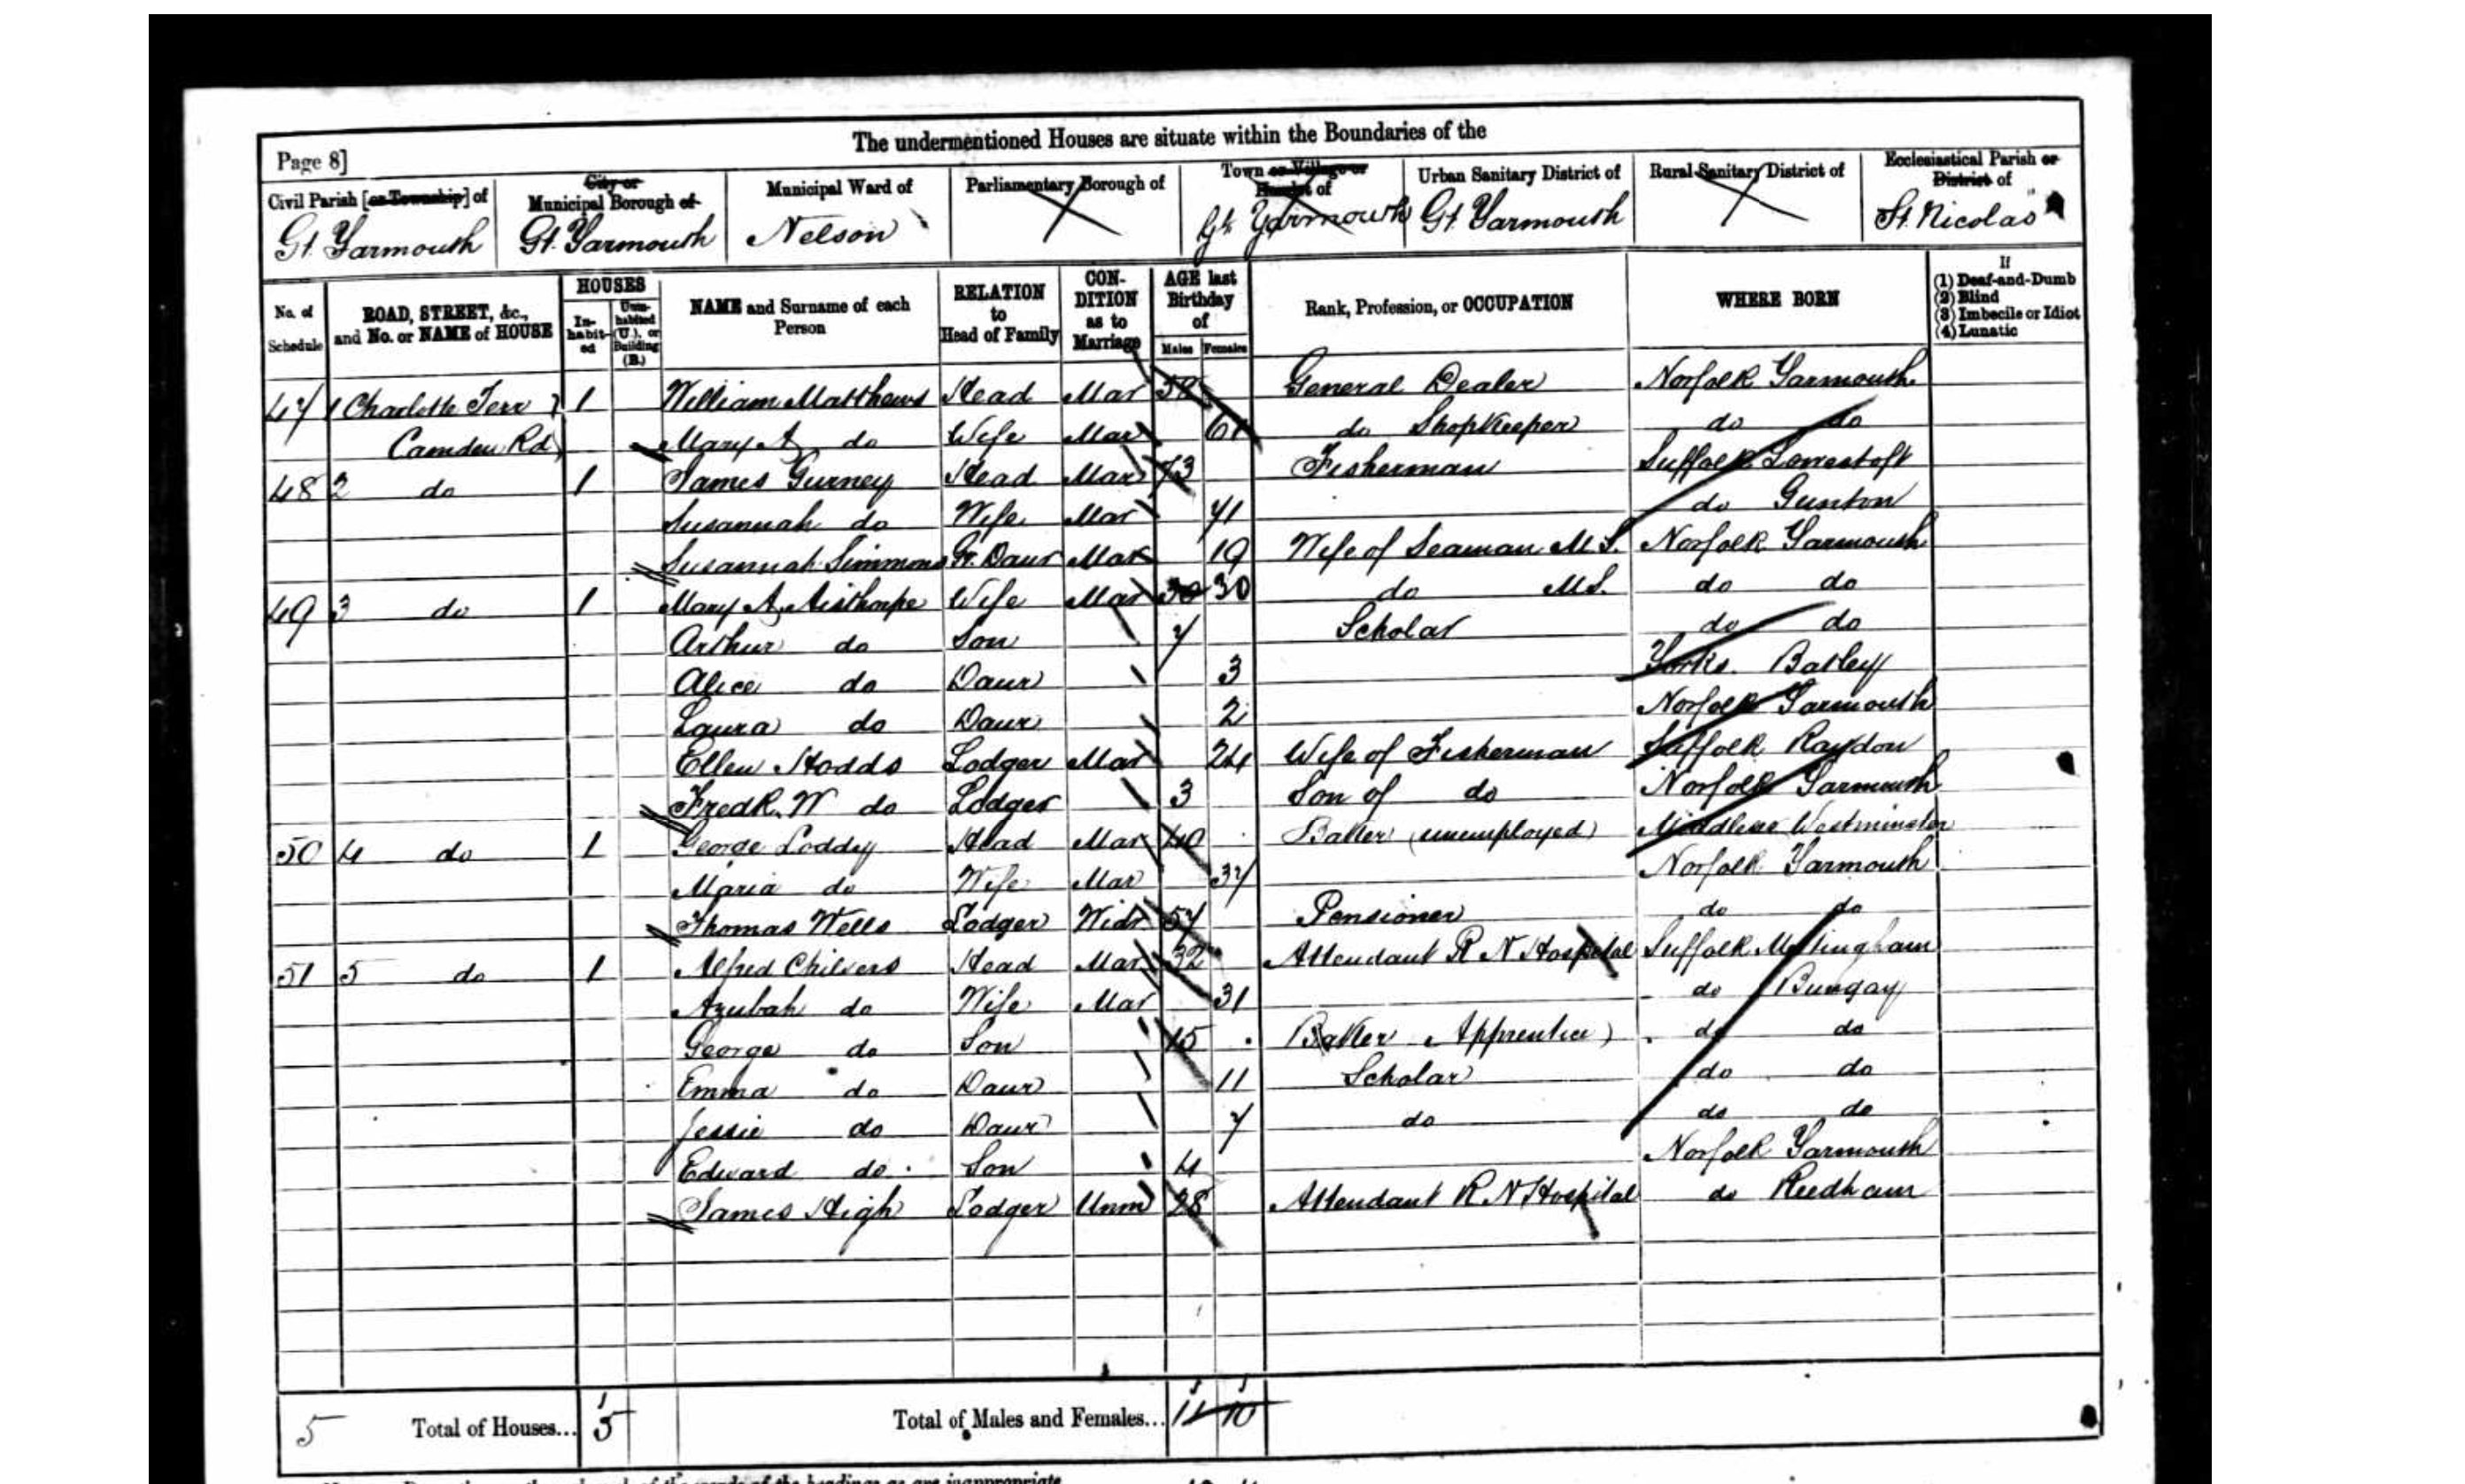 The undermentioned Houses are situate within the Boundaries of the
Page 8]
Civil Parish [or Township] of
City or Municipal Borough of
Municipal Ward of
Parliamentary Borough of
Town or Village or Hamlet of
Urban Sanitary District of
Rural Sanitary District of
Ecclesiastical Parish or District of
Gt. Yarmouth Gt. Yarmouth Nelson Gt. Yarmouth Gt. Yarmouth St. Nicolas
No. of Schedule
ROAD, STREET, &c., and No. or NAME of HOUSE
HOUSES
In-habit-ed
Unin-habited (U.), or Building (B.)
NAME and Surname of each Person
RELATION to Head of Family
CON-DITION as to Marriage
AGE last Birthday of
Males Females
Rank, Profession, or OCCUPATION
WHERE BORN
If
(1) Deaf-and-Dumb
(2) Blind
(3) Imbecile or Idiot
(4) Lunatic
47 1 Charlotte Terr 1 William Matthews Head Mar General Dealer Norfolk Yarmouth
Camden Rd Mary A do Wife Mar 61 do Shopkeeper do do
48 2 do 1 James Gurney Head Mar 73 Fisherman Suffolk Lowestoft
Susannah do Wife Mar 71 do Gunton
Susannah Simmons Gr. Daur Mar 19 Wife of Seaman M.S. Norfolk Yarmouth
49 3 do 1 Mary A. Aisthorpe Wife Mar 30 30 do M.S. do do
Arthur do Son 7 Scholar do do
Alice do Daur 3 Yorks. Batley
Laura do Daur 2 Norfolk Yarmouth
Ellen Hodds Lodger Mar 24 Wife of Fisherman Suffolk Raydon
Fredk. W do Lodger 3 Son of do Norfolk Yarmouth
50 4 do 1 George Loddy Head Mar 40 Baker (unemployed) Middlesex Westminster
Maria do Wife Mar 37 Norfolk Yarmouth
Thomas Wells Lodger Widr 57 Pensioner do do
51 5 do 1 Alfred Chilvers Head Mar 32 Attendant R N Hospital Suffolk Mettingham
Azubah do Wife Mar 31 do Bungay
George do Son 15 Baker Apprentice) do do
Emma do Daur 11 Scholar do do
Jessie do Daur 7 do do do
Edward do Son 4 Norfolk Yarmouth
James High Lodger Unm 28 Attendant R N Hospital do Reedham
5 Total of Houses... 5 Total of Males and Females... 11 10